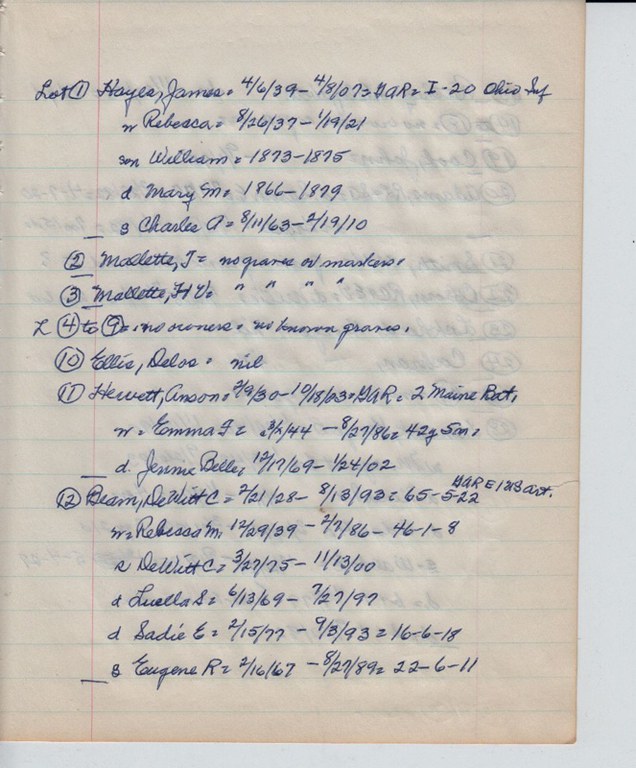 Lot ① Hayes, James = 4/6/39 - 4/8/07 = GAR = I - 20 Ohio Inf
w Rebecca = 8/26/37 - 1/19/21
son William = 1873 - 1875
d. Mary M = 1866 - 1879
s Charles A = 8/11/63 - 2/19/10
② Mallette, J = no graves or markers.
③ Mallette, H V = " " " "
L ④ to ⑨ = no owners = no known graves.
⑩ Ellis, Delos = nil
⑪ Hewett, Anson = 2/9/30 - 10/18/03 = GAR = 2 Maine Bat.
w = Emma F = /44 - 8/27/86 = 42y 5m =
d. Jennie Belle = 12/17/69 - 1/24/02
GAR E 1 WB art.
⑫ Beam, DeWitt C = 2/21/28 - 8/13/93 = 65-5-22
w = Rebecca M. 12/29/39 - 2/7/86 - 46-1-8
s DeWitt C = 3/27/75 - 11/13/00
d Luella S = 6/13/69 - 7/27/97
d Sadie E = 2/15/77 - 9/3/93 = 16-6-18
s Eugene R = 2/16/67 - 8/27/89 = 22-6-11